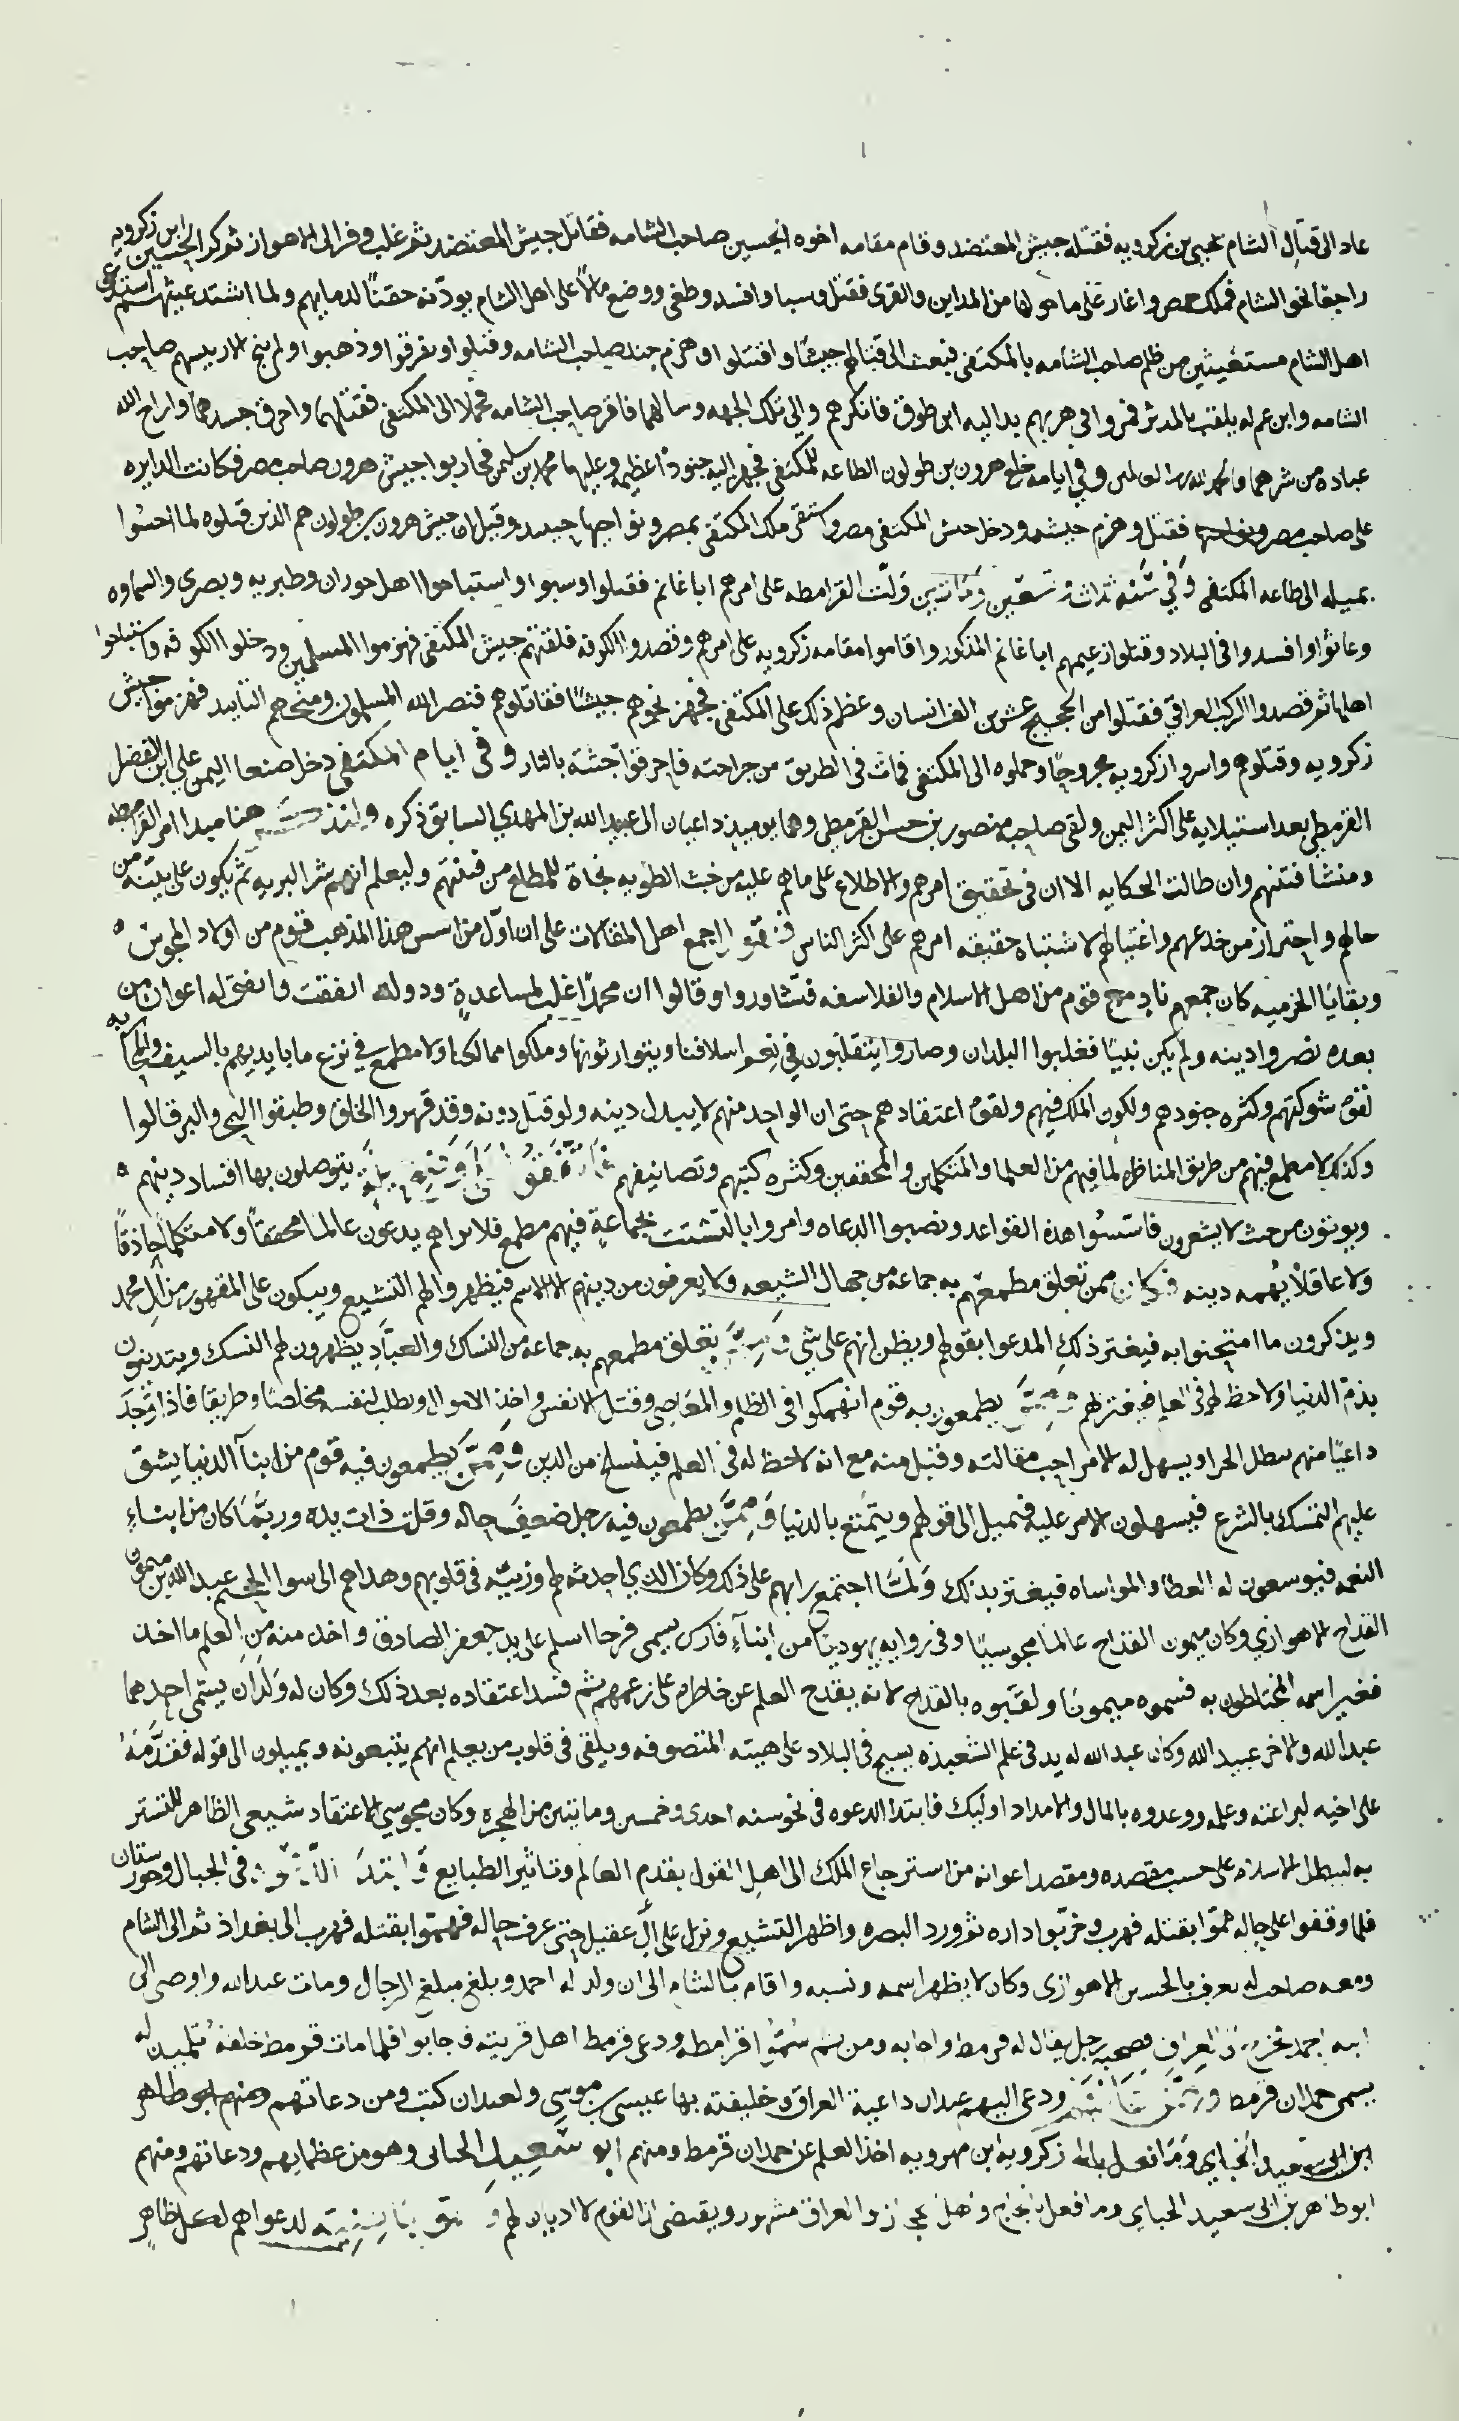 عاد الى قتال الشام يحيى بن زكرويه فقتله جيش المعتضد وقام مقامه اخوه الحسين صاحب الشامه فقاتل جيش المعتضد ثم غلب وفر الى الاهواز ثم كر الحسين ابن زكرويه
راجعا نحو الشام فملك حمص واغار على ما حولها من المداين والقرى فقتل وسبا وافسد وطغى ووضع مالا على اهل الشام يودنه حقنا لدمايهم ولما اشتد عيثهم
اهل الشام مستغيثين من ظلم صاحب الشامه بالمكتفى فبعث الى قتالهم جيشا واقتتلوا وهزم جند صاحب الشامه وقتلوا وتفرقوا وذهبوا ولم ينج الا رييسهم صاحب
الشامه وابن عم له يلقب بالمدثر فمروا فى هربهم بداليه ابن طوق فانكرهم والى تلك الجهه وسالهما فاقر صاحب الشامه فحملا الى المكتفى فقتلهما واحرق جسدهما واراح الله
عباده من شرهما والحمد لله رب العالمين وفى ايامه خلع هرون بن طولون الطاعه للمكتفى فجهز اليه جنودا عظيمه وعليها محمد ابن سليمن فحاربوا جيش هرون صاحب مصر فكانت الدايره
على صاحب مصر فقتل وهزم جيشه ودخل جيش المكتفى مصر واستقر ملك المكتفى بمصر ونواحيها حينيد وقيل ان جيش هرون بن طولون هم الذين قتلوه لما احسوا
بميله الى طاعه المكتفى وفى سنه ثلاث وتسعين ومايتين ولت القرامطه على امرهم ابا غانم فقتلوا وسبوا واستباحوا اهل حوران وطبريه وبصرى والسماوه
وعاثوا وافسدوا فى البلاد وقتلوا زعيمهم ابا غانم المذكور واقاموا مقامه زكرويه على امرهم وقصدوا الكوفه فلقتهم جيش المكتفى فهزموا المسلمين ودخلوا الكوفه واستباحوا
اهلها ثم قصدوا الركب العراقي فقتلوا من الحجيج عشرين الف انسان وعظم ذلك على المكتفى فجهز نحوهم جيشا فقاتلوهم فنصر الله المسلمون ومنحهم التاييد فهزموا جيش
زكرويه وقتلوهم واسروا زكرويه مجروحا وحملوه الى المكتفى فمات فى الطريق من جراحته فاحرقوا جثته بالنار وفى ايام المكتفى دخل صنعا اليمن على ابن الفضل
القرمطي بعد استيلايه على اكثر اليمن ولقى صاحبه منصور بن حسن القرمطي وهما يوميذ داعيان الى عبيد الله بن المهدي السابق ذكره هنا مبدا امر القرامطه
ومنشا فتنتهم وان طالت الحكايه الا ان فى تحقيق امرهم والاطلاع على ما هم عليه من خبث الطويه نجاة للمطلع من فتنتهم وليعلم انهم شر البريه ثم يكون على بينه من
حالهم واحتراز من خدعهم واغتيالهم لاشتباه حقيقه امرهم على اكثر الناس اجمع اهل المقالات على ان اول من اسس هذا المذهب قوم من اولاد المجوس
وبقايا الخرميه كان جمعهم ناد مع قوم من اهل الاسلام والفلاسفه فتشاوروا وقالوا ان محمدا غلب لمساعدة ودوله اتفقت واتفق له اعوان من
بعده نصروا دينه ولم يكن نبيا فغلبوا البلدان وصاروا يتقلبون فى نعم اسلافنا ويتوارثونها وملكوا ممالكنا ولا مطمع فى نزع ما بايديهم بالسيف
لقوة شوكتهم وكثره جنودهم ولكون الملك فيهم ولقوة اعتقادهم حتى ان الواحد منهم لا يبدل دينه ولو قتل دونه وقد قهروا الخلق وطبقوا البحر والبر قالوا
وكذلك لا مطمع فيهم من طريق المناظره لما فيهم من العلما والمتكلمين والمحققين وكثره كتبهم وتصانيفهم يتوصلون بها افساد دينهم
ويوتون من حيث لا يشعرون فاسسوا هذه القواعد ونصبوا الدعاه وامروا بالتشتت بجماعة فيهم مطمع فلا تراهم يدعون عالما محققا ولا متكلما حاذقا
ولا عاقلا يهمه دينه فكان ممن تعلق مطمعهم به جماعه من جهال الشيعه ولا يعرفون من دينهم الا الاسم فيظهروا لهم التشيع ويبكون على المقهور من ال محمد
ويذكرون ما امتحنوا به فيغتر ذلك المدعوا بقولهم ويظن انهم على شي تعلق مطمعهم به جماعه من النساك والعباد يظهرون لهم النسك ويبتدئون
بذم الدنيا ولا حظ لهم فى العلم فيغتر لهم يطمعون به قوم انهمكوا فى الظلم والمعاصى وقتل الانفس واخذ الاموال ويطلب لنفسه مخلصا وطريقا فاذا وجد
داعيا منهم يبطل الحرام ويسهل له الامر احب مقالته وقبل منه مع انه لا حظ له فى العلم فينسلخ من الدين وممن يطمعون فيه قوم من ابناء الدنيا يشق
عليهم التمسك بالشرع فيسهلون الامر عليه فيميل الى قولهم ويتمتع بالدنيا وممن يطمعون فيه رجل ضعيف حاله وقلت ذات يده وربما كان من ابناء
النعمه فيوسعون له العطا والمواساه فيغتر بذلك ولما اجتمع رايهم على ذلك وكان الذي احدثه لهم وزينه فى قلوبهم وهداهم الى سوا الجحيم عبد الله بن ميمون
القداح الاهوازي وكان ميمون القداح عالما مجوسيا وفى روايه يهوديا من ابناء فارس يسمى فرحا اسلم على يد جعفر الصادق واخذ منه من العلم ما اخذ
فغير اسمه المختلطون به فسموه ميمونا ولقبوه بالقداح لانه يقدح العلم عن خاطره على زعمهم ثم فسد اعتقاده بعد ذلك وكان له ولدان يسمى احدهما
عبد الله والاخر عبيد الله وكان عبد الله له يد فى علم الشعبذه يسيح فى البلاد على هيئه المتصوفه ويلقى فى قلوب من يعلم انهم يتبعونه ويميلون الى قوله فقدمه
على اخيه لبراعته وعلمه ووعدوه بالمال والامداد اوليك فابتدا الدعوه فى نحو سنه احدى وخمسين ومايتين من الهجرة وكان مجوسي الاعتقاد شيعي الظاهر للتستر
به ليبطل الاسلام على حسب مقصده ومقصد اعوانه من استرجاع الملك الى اهل القول بقدم العالم وتاثير الطبايع فى الجبال
فلما وقفوا على حاله هموا بقتله فهرب وخربوا داره ثم ورد البصره واظهر التشيع ونزل على ال عقيل حتى عرف حاله فهموا بقتله فهرب الى بغداذ ثم الى الشام
ومعه صاحب له يعرف بالحسن الاهوازى وكان لا يظهر اسمه ونسبه واقام بالشام الى ان ولد له احمد وبلغ مبلغ الرجال ومات عبد الله واوصى الى
ابنه احمد فصحبه رجل يقال له قرمط واجابه ومن ثم سموا قرامطه ودعى قرمط اهل قريته فاجابوا فلما مات قرمط خلفه تلميذ له
يسمى حمدان قرمط ودعى اليهم عبدان داعية العراق وخليفته بها عيسى بن موسى ولعبدان كتب ومن دعاتهم
زكرويه ابن مهرويه اخذ العلم عن حمدان قرمط ومنهم ابو سعيد الجنابى وهو من عظمايهم ودعاتهم ومنهم
ابو طاهر بن ابى سعيد الجنابي وما فعل والعراق مشهور ويقتضى ان القوم لا اديان لهم لدعواهم لكل ظاهر